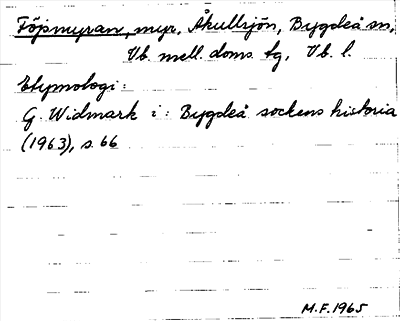 Föpsmyran, myr, Åkullsjön, Bygdeå sn,
Vb. mell. doms. tg, Vb. l.
Etymologi:
G. Widmark i: Bygdeå sockens historia
(1963), s. 66
M.F. 1965